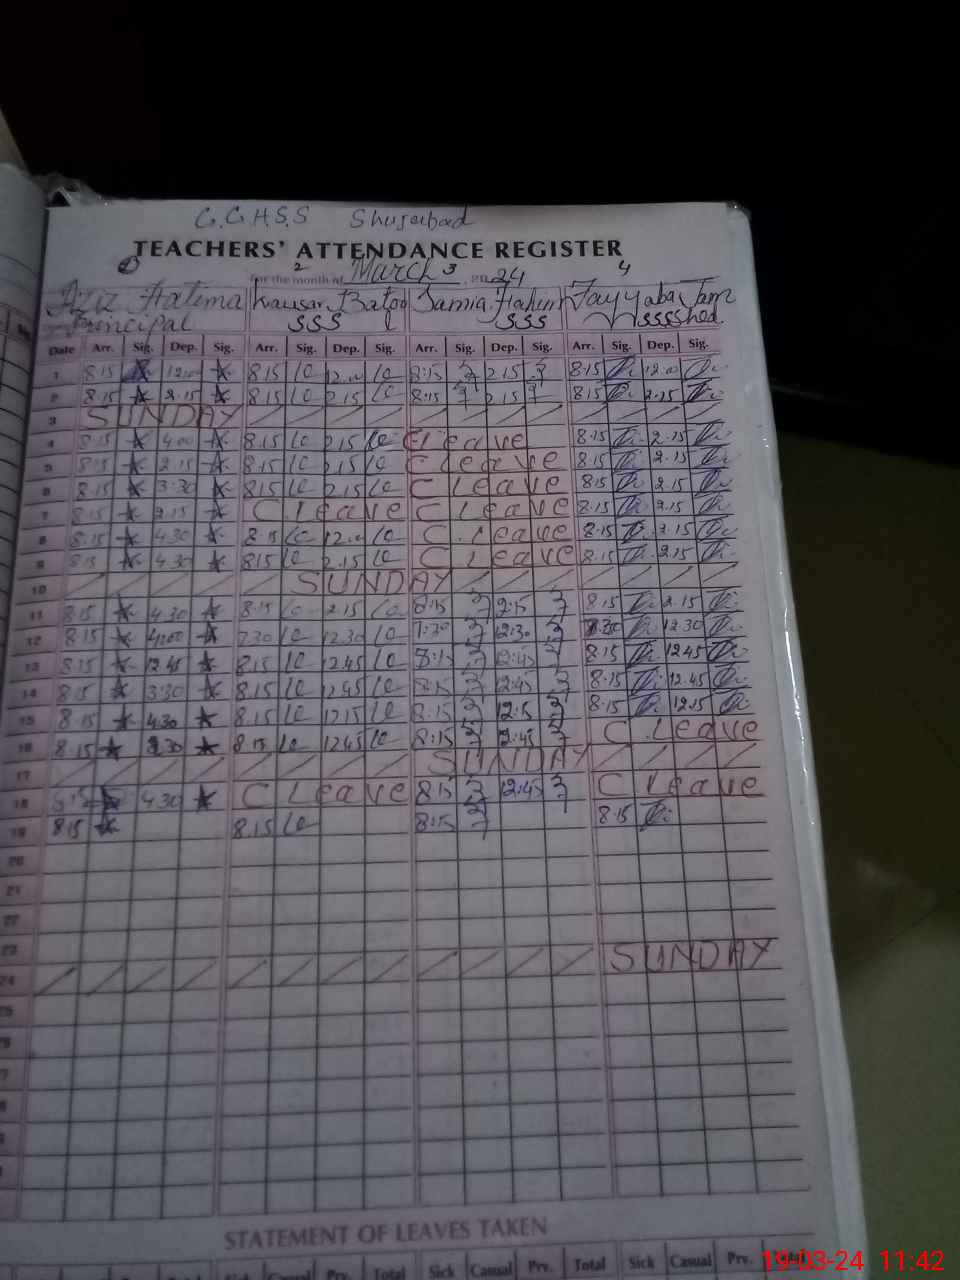 G.G.H.S.S Shujabad
TEACHERS' ATTENDANCE REGISTER
for the month of March 2024
1 2 3 4
Aziz Fatima Kausar Batool Samia Fayyaba
Principal SSS SSS SSS
Date Arr. Sig. Dep. Sig. Arr. Sig. Dep. Sig. Arr. Sig. Dep. Sig. Arr. Sig. Dep. Sig.
1 8.15 12.00 8.15 12.00 8:15 2.15 8.15 12.00
2 8.15 2.15 8.15 2.15 8:15 2.15 8.15 2.15
3 SUNDAY
4 8.15 4.00 8.15 2.15 C leave 8.15 2.15
5 8.15 2.15 8.15 2.15 C leave 8.15 2.15
6 8.15 3:30 8.15 2.15 C Leave 8.15 2.15
7 8.15 2.15 C. Leave C Leave 8.15 2.15
8 8.15 4.30 8.15 12.00 C. Leave 8.15 2.15
9 8.15 4.30 8.15 2.15 C Leave 8.15 2.15
10 SUNDAY
11 8.15 4.30 8.15 2.15 8:15 2:15 8.15 2.15
12 8.15 4.00 7.30 12.30 7:30 12:30 12.30
13 8.15 12.45 8.15 12.45 8:15 12:45 8.15 12.45
14 8.15 3.30 8.15 12.45 8:15 12:45 8.15 12.45
15 8.15 4.30 8.15 12.15 8:15 12:15 8.15 12.15
16 8.15 8.15 12.45 8:15 12:45 C. Leave
17 SUNDAY
18 4.30 C Leave 8:15 12:45 C Leave
19 8.15 8.15 8:15 8.15
20
21
22
23
24 SUNDAY
STATEMENT OF LEAVES TAKEN
Casual Prv. Total Sick Casual Prv. Total Sick Casual Prv. Total
19-03-24 11:42